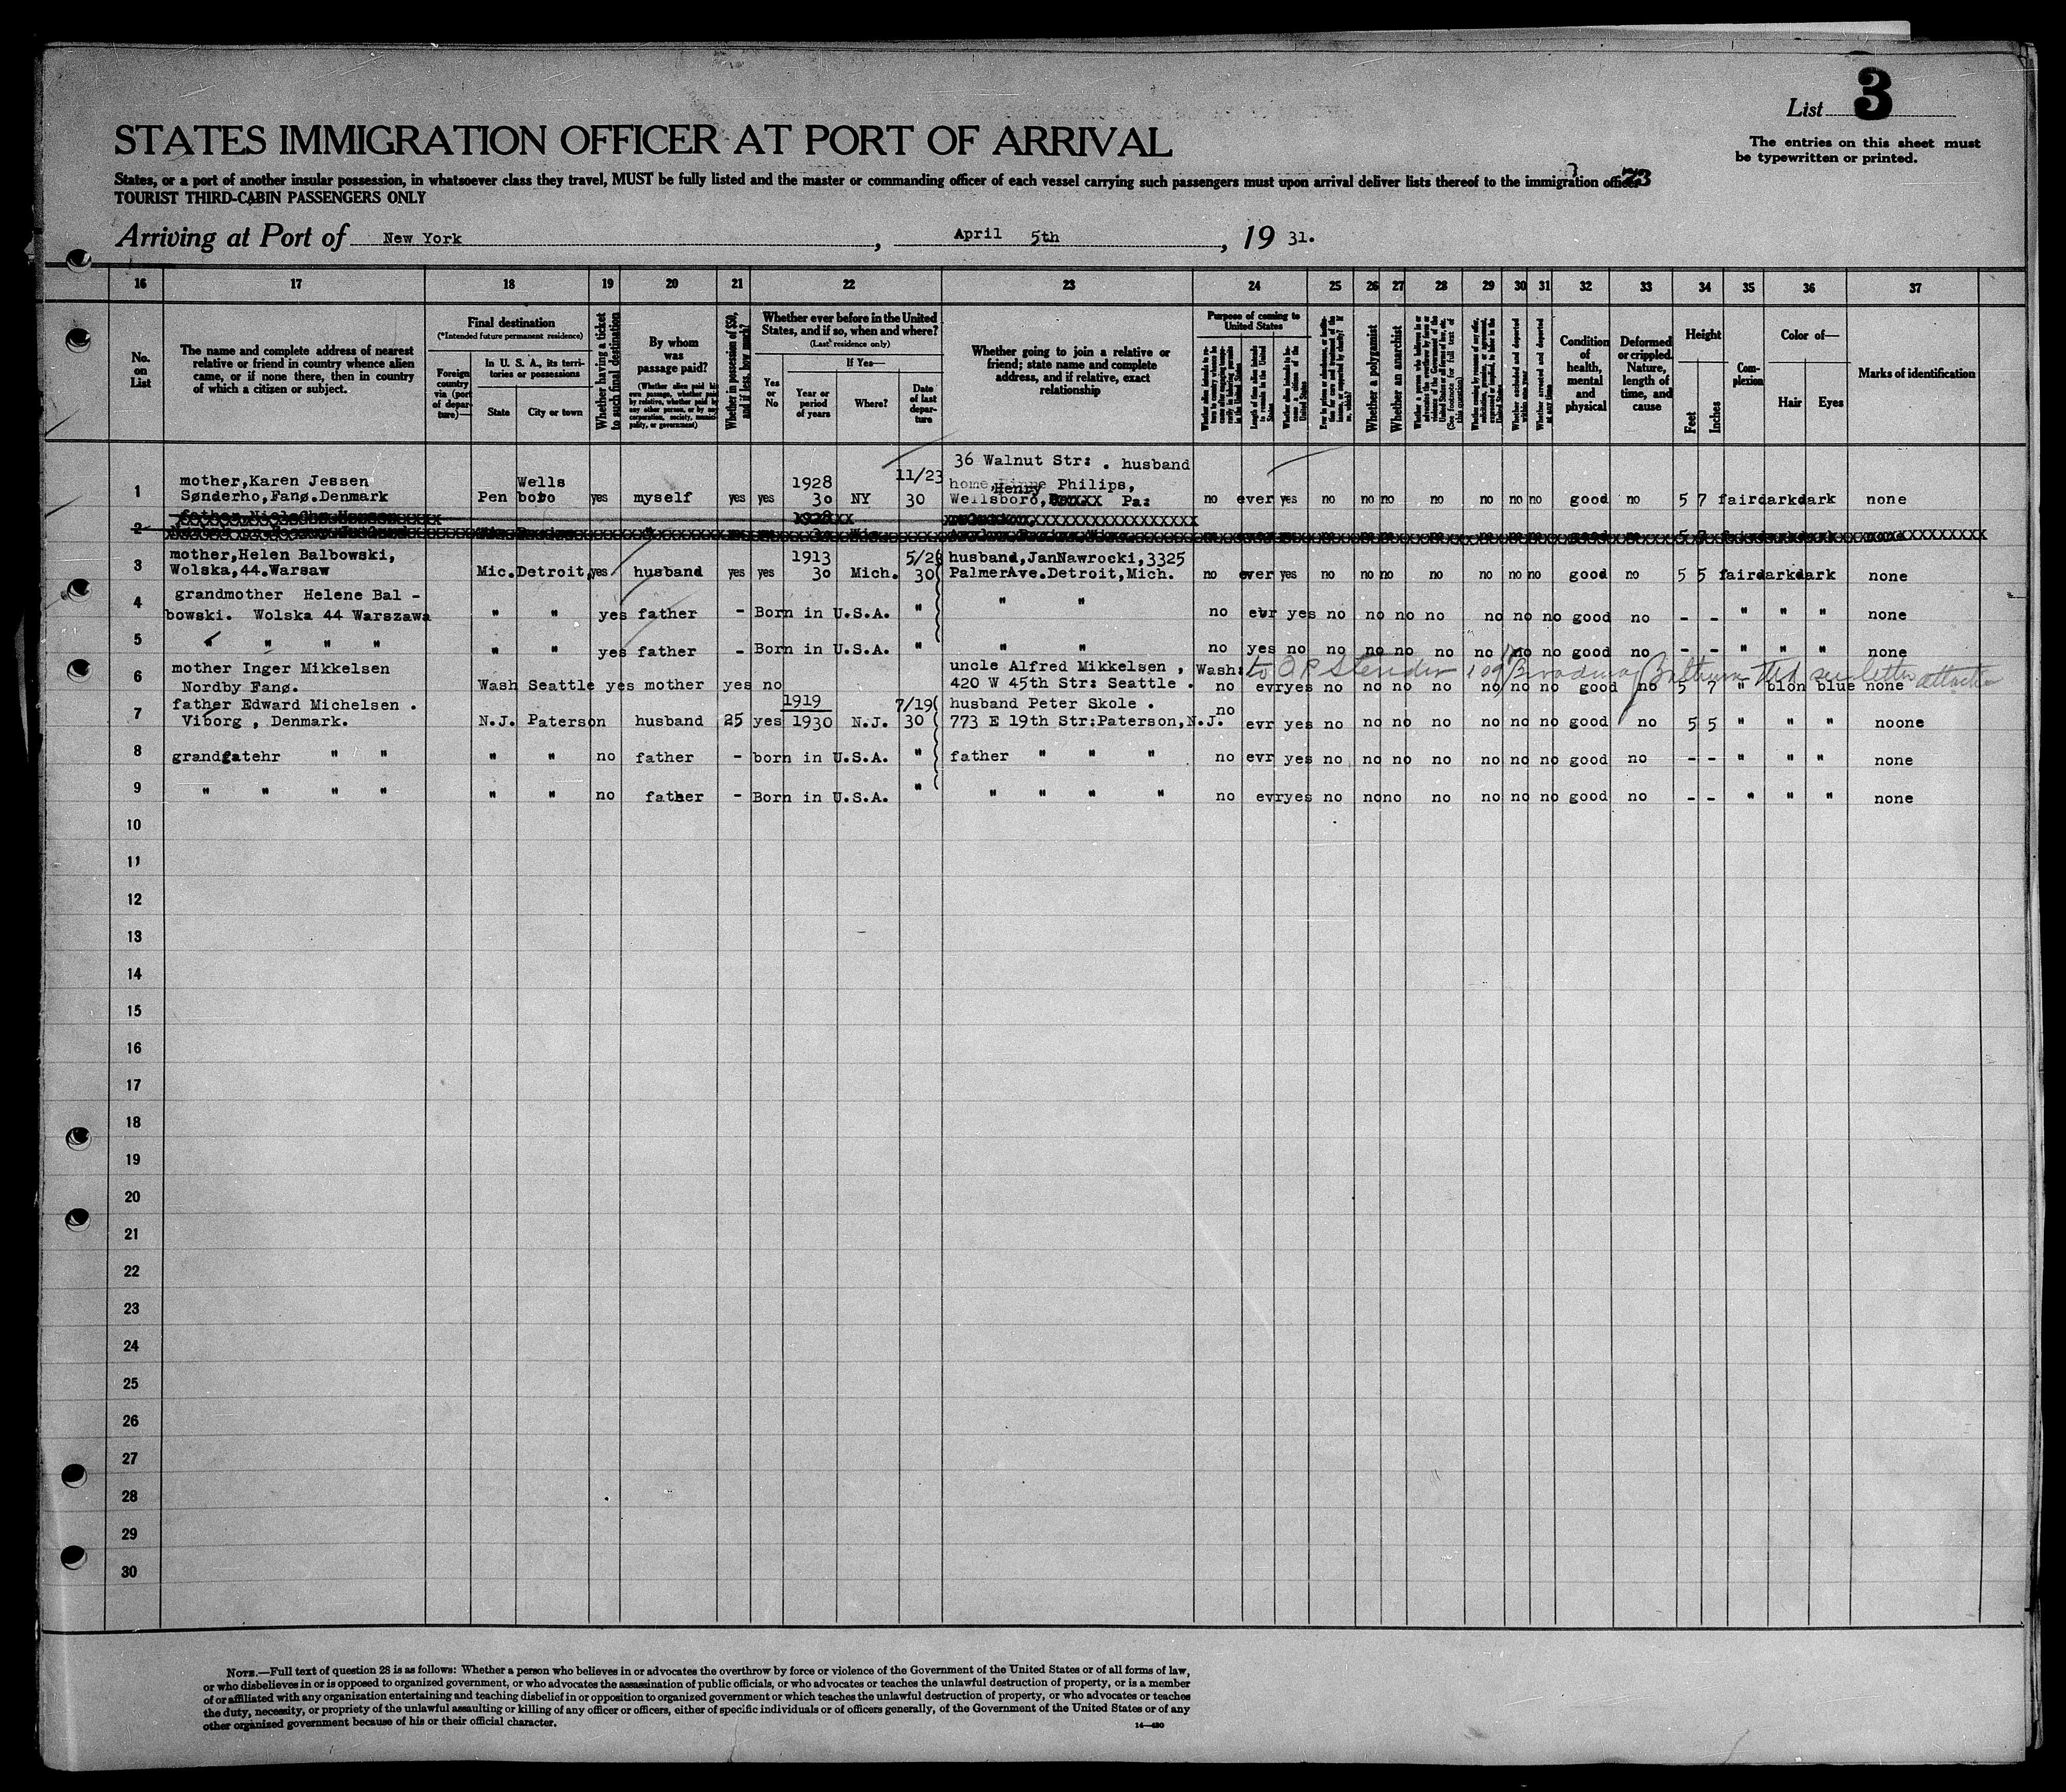 List 3
STATES IMMIGRATION OFFICER AT PORT OF ARRIVAL
The entries on this sheet must
be typewritten or printed.
States, or a port of another insular possession, in whatsoever class they travel, MUST be fully listed and the master or commanding officer of each vessel carrying such passengers must upon arrival deliver lists thereof to the immigration officer
TOURIST THIRD-CABIN PASSENGERS ONLY
Arriving at Port of New York, April 5th, 19 31.
16 17 18 19 20 21 22 23 24 25 26 27 28 29 30 31 32 33 34 35 36 37
No. on List
The name and complete address of nearest
relative or friend in country whence alien
came, or if none there, then in country
of which a citizen or subject.
Final destination
(*Intended future permanent residence)
Foreign country via (port of departure)—
In U. S. A., its territories or possessions
State
City or town
Whether having a ticket to such final destination
By whom was passage paid?
(Whether alien paid his own passage, whether paid by relative, whether paid by any other person, or by any corporation, society, municipality, or government)
Whether in possession of $50, and if less, how much?
Whether ever before in the United
States, and if so, when and where?
(Last residence only)
Yes or No
If Yes—
Year or period of years
Where?
Date of last departure
Whether going to join a relative or
friend; state name and complete
address, and if relative, exact
relationship
Purpose of coming to United States
Whether a polygamist
Whether an anarchist
Condition of health, mental and physical
Deformed or crippled. Nature, length of time, and cause
Height
Feet
Inches
Complexion
Color of—
Hair
Eyes
Marks of identification
36 Walnut Str: . husband
mother,Karen Jessen Wells 1928 11/23 home Philips,
1 Sønderho,Fanø.Denmark Pen boro yes myself yes yes 30 NY 30 Henry Wellsboro, Pa: no ever yes no no no no no no no good no 5 7 fair dark dark none
2
mother,Helen Balbowski, 1913 husband,JanNawrocki,3325
3 Wolska,44.Warsaw Mic. Detroit, yes husband yes yes 30 Mich. 30 PalmerAve.Detroit,Mich. no ever yes no no no no no no no good no 5 5 fair dark dark none
grandmother Helene Bal -
4 bowski. Wolska 44 Warszawa " " yes father - Born in U.S.A. " " " no evr yes no no no no no no no good no - - " " " none
5 " " " " " " yes father - Born in U.S.A. " " " no yes no no no no no no no no good no - - " " " none
mother Inger Mikkelsen uncle Alfred Mikkelsen , Wash: to O P Stender 109 Broadway see letter
6 Nordby Fanø. Wash Seattle yes mother yes no 420 W 45th Str: Seattle . no evr yes no no no no no no no good no 5 7 " blon blue none
father Edward Michelsen . 1919 7/19 husband Peter Skole .
7 Viborg , Denmark. N.J. Paterson husband 25 yes 1930 N.J. 30 773 E 19th Str:Paterson,N.J. no evr yes no no no no no no no good no 5 5 " " " noone
8 grandfatehr " " " " no father - born in U.S.A. " father " " " no evr yes no no no no no no no good no - - " " " none
9 " " " " " " no father - Born in U.S.A. " " " " " no evr yes no no no no no no no good no - - " " " none
10
11
12
13
14
15
16
17
18
19
20
21
22
23
24
25
26
27
28
29
30
NOTE.—Full text of question 28 is as follows: Whether a person who believes in or advocates the overthrow by force or violence of the Government of the United States or of all forms of law,
or who disbelieves in or is opposed to organized government, or who advocates the assassination of public officials, or who advocates or teaches the unlawful destruction of property, or is a member
of or affiliated with any organization entertaining and teaching disbelief in or opposition to organized government or which teaches the unlawful destruction of property, or who advocates or teaches
the duty, necessity, or propriety of the unlawful assaulting or killing of any officer or officers, either of specific individuals or of officers generally, of the Government of the United States or of any
other organized government because of his or their official character.
14—430